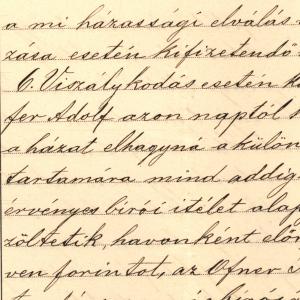 a mi házassági elválás
zása esetén kifizetendő
6. Viszálykodás esetén
fer Adolf azon naptól
a házat elhagyná a külön
tartamára mind addig
érvényes birói itélet alap
zöltetik, havonként elő
ven forintot, az Ofner